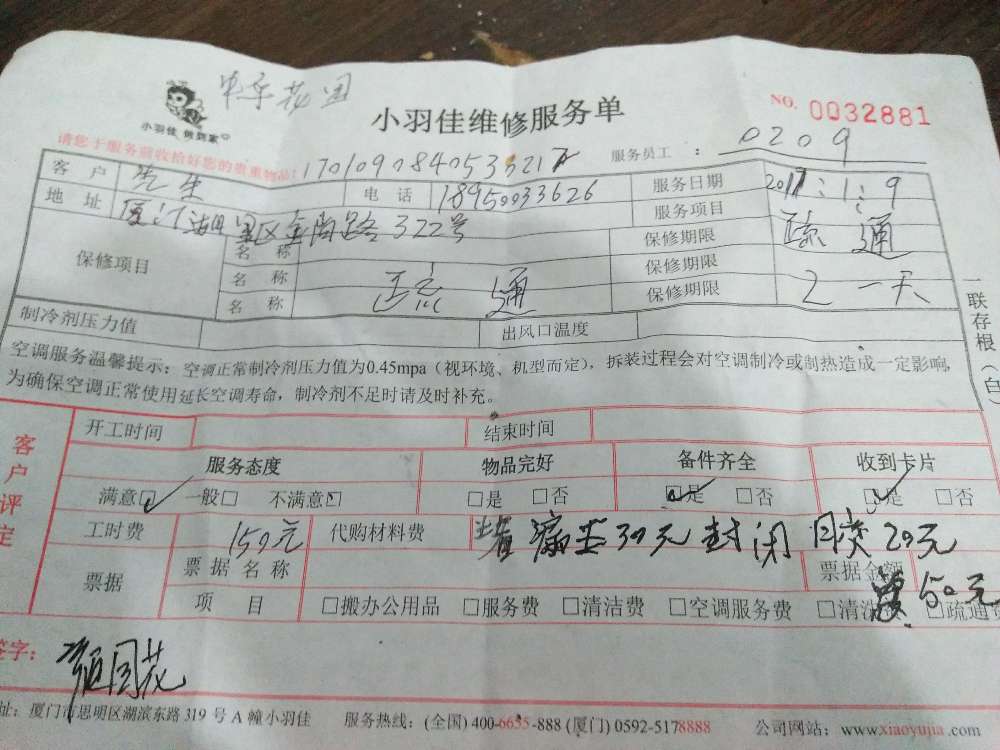 花园
小羽佳 做到家
小羽佳维修服务单
NO. 0032881
请您于服务前收拾好您的贵重物品!
服务员工 : 0209
客 户 先生 电 话 18950033626 服务日期 2017:1:9
地 址 厦门湖里区金尚路322号 服务项目 疏通
保修项目 名 称 保修期限
名 称 疏通 保修期限
名 称 保修期限 2 一天
制冷剂压力值 出风口温度
空调服务温馨提示: 空调正常制冷剂压力值为0.45mpa(视环境、机型而定),拆装过程会对空调制冷或制热造成一定影响,
为确保空调正常使用延长空调寿命,制冷剂不足时请及时补充。
一联存根(白)
客户评定
开工时间 结束时间
服务态度 物品完好 备件齐全 收到卡片
满意□ 一般□ 不满意□ □是 □否 □是 □否 □是 □否
工时费 150元 代购材料费 30元 封闭 20元
票据 票据名称 票据金额 50元
项 目 □搬办公用品 □服务费 □清洁费 □空调服务费 □清洗 □疏通费
签字:
址: 厦门市思明区湖滨东路 319 号 A 幢小羽佳 服务热线: (全国) 400-6655-888 (厦门) 0592-5178888 公司网站: www.xiaoyujia.com